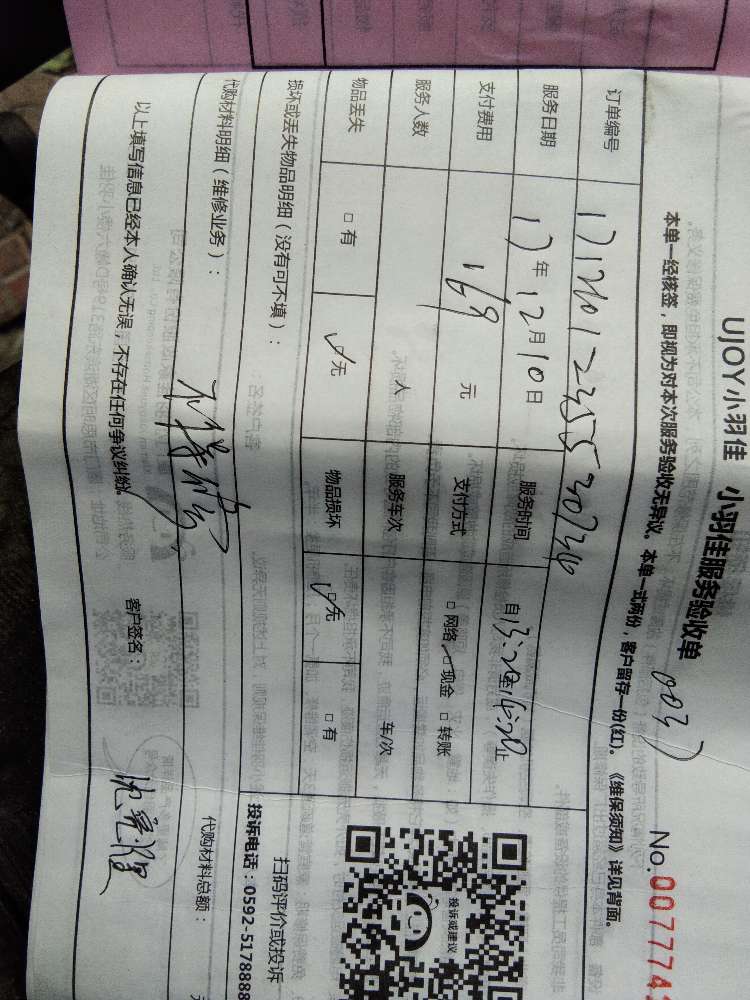 UJOY小羽佳 小羽佳服务验收单
0037
No.007774
本单一经核签,即视为对本次服务验收无异议。本单一式两份,客户留存一份(红)。《维保须知》详见背面。
订单编号
服务日期 17年12月10日 服务时间 自13:20至14:20止
支付费用 169 元 支付方式 □网络 ☑现金 □转账
服务人数 人 服务车次 车/次
物品丢失 □有 ☑无 物品损坏 ☑无 □有
损坏或丢失物品明细(没有可不填):
代购材料明细(维修业务): 代购材料总额: 元
以上填写信息已经本人确认无误,不存在任何争议纠纷。 客户签名:
投诉或建议
扫码评价或投诉
投诉电话:0592-5178888